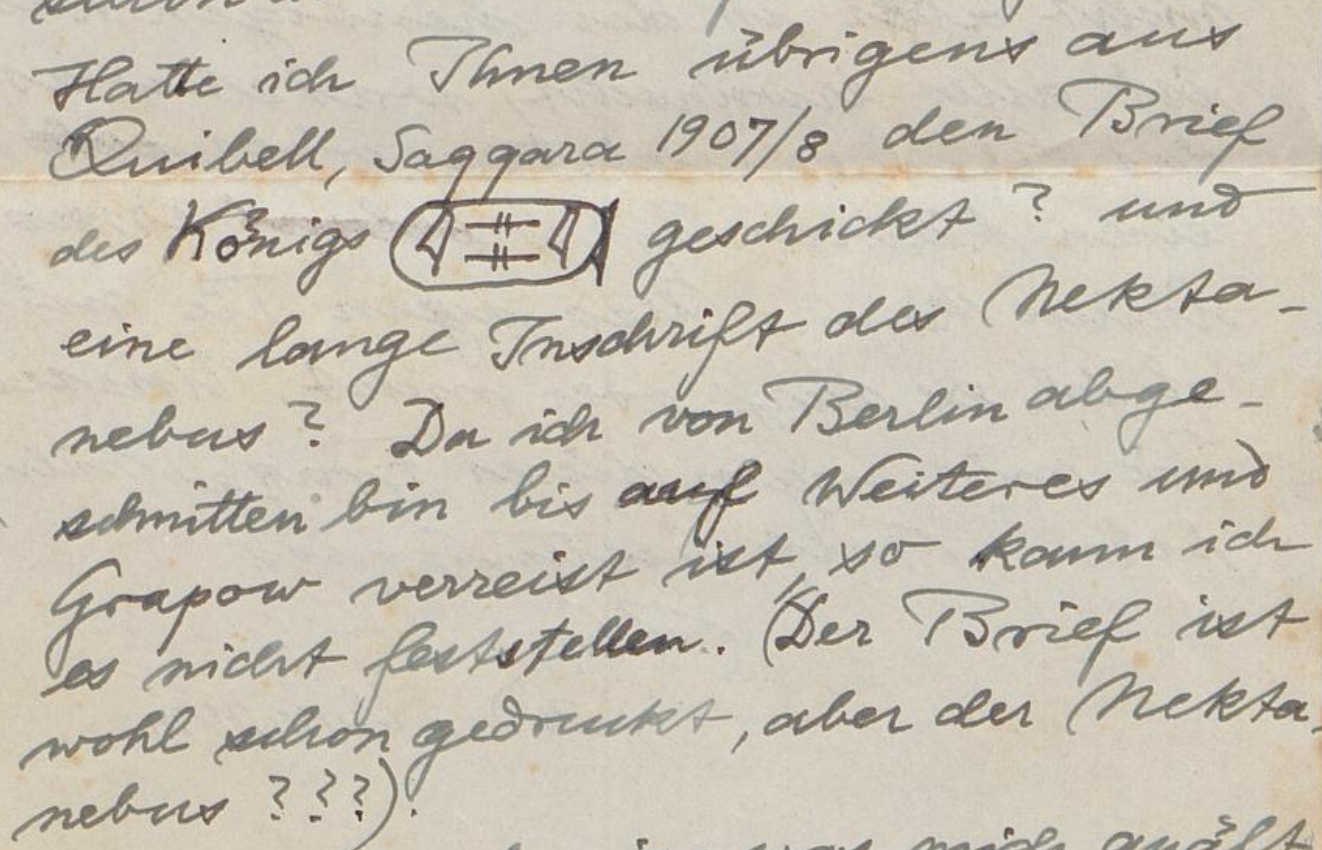 Hatte ich Ihnen übrigens aus
Quibell, Saqqara 1907/8 den Brief
des Königs 𓍹𓇋𓊃𓊃𓇋𓍺 geschickt? und
eine lange Inschrift des Nekta-
nebus? Da ich von Berlin abge-
schnitten bin bis auf Weiteres und
Grapow verreist ist, so kann ich
es nicht feststellen. (Der Brief ist
wohl schon gedruckt, aber der Nekta-
nebus ???).
was mich quält